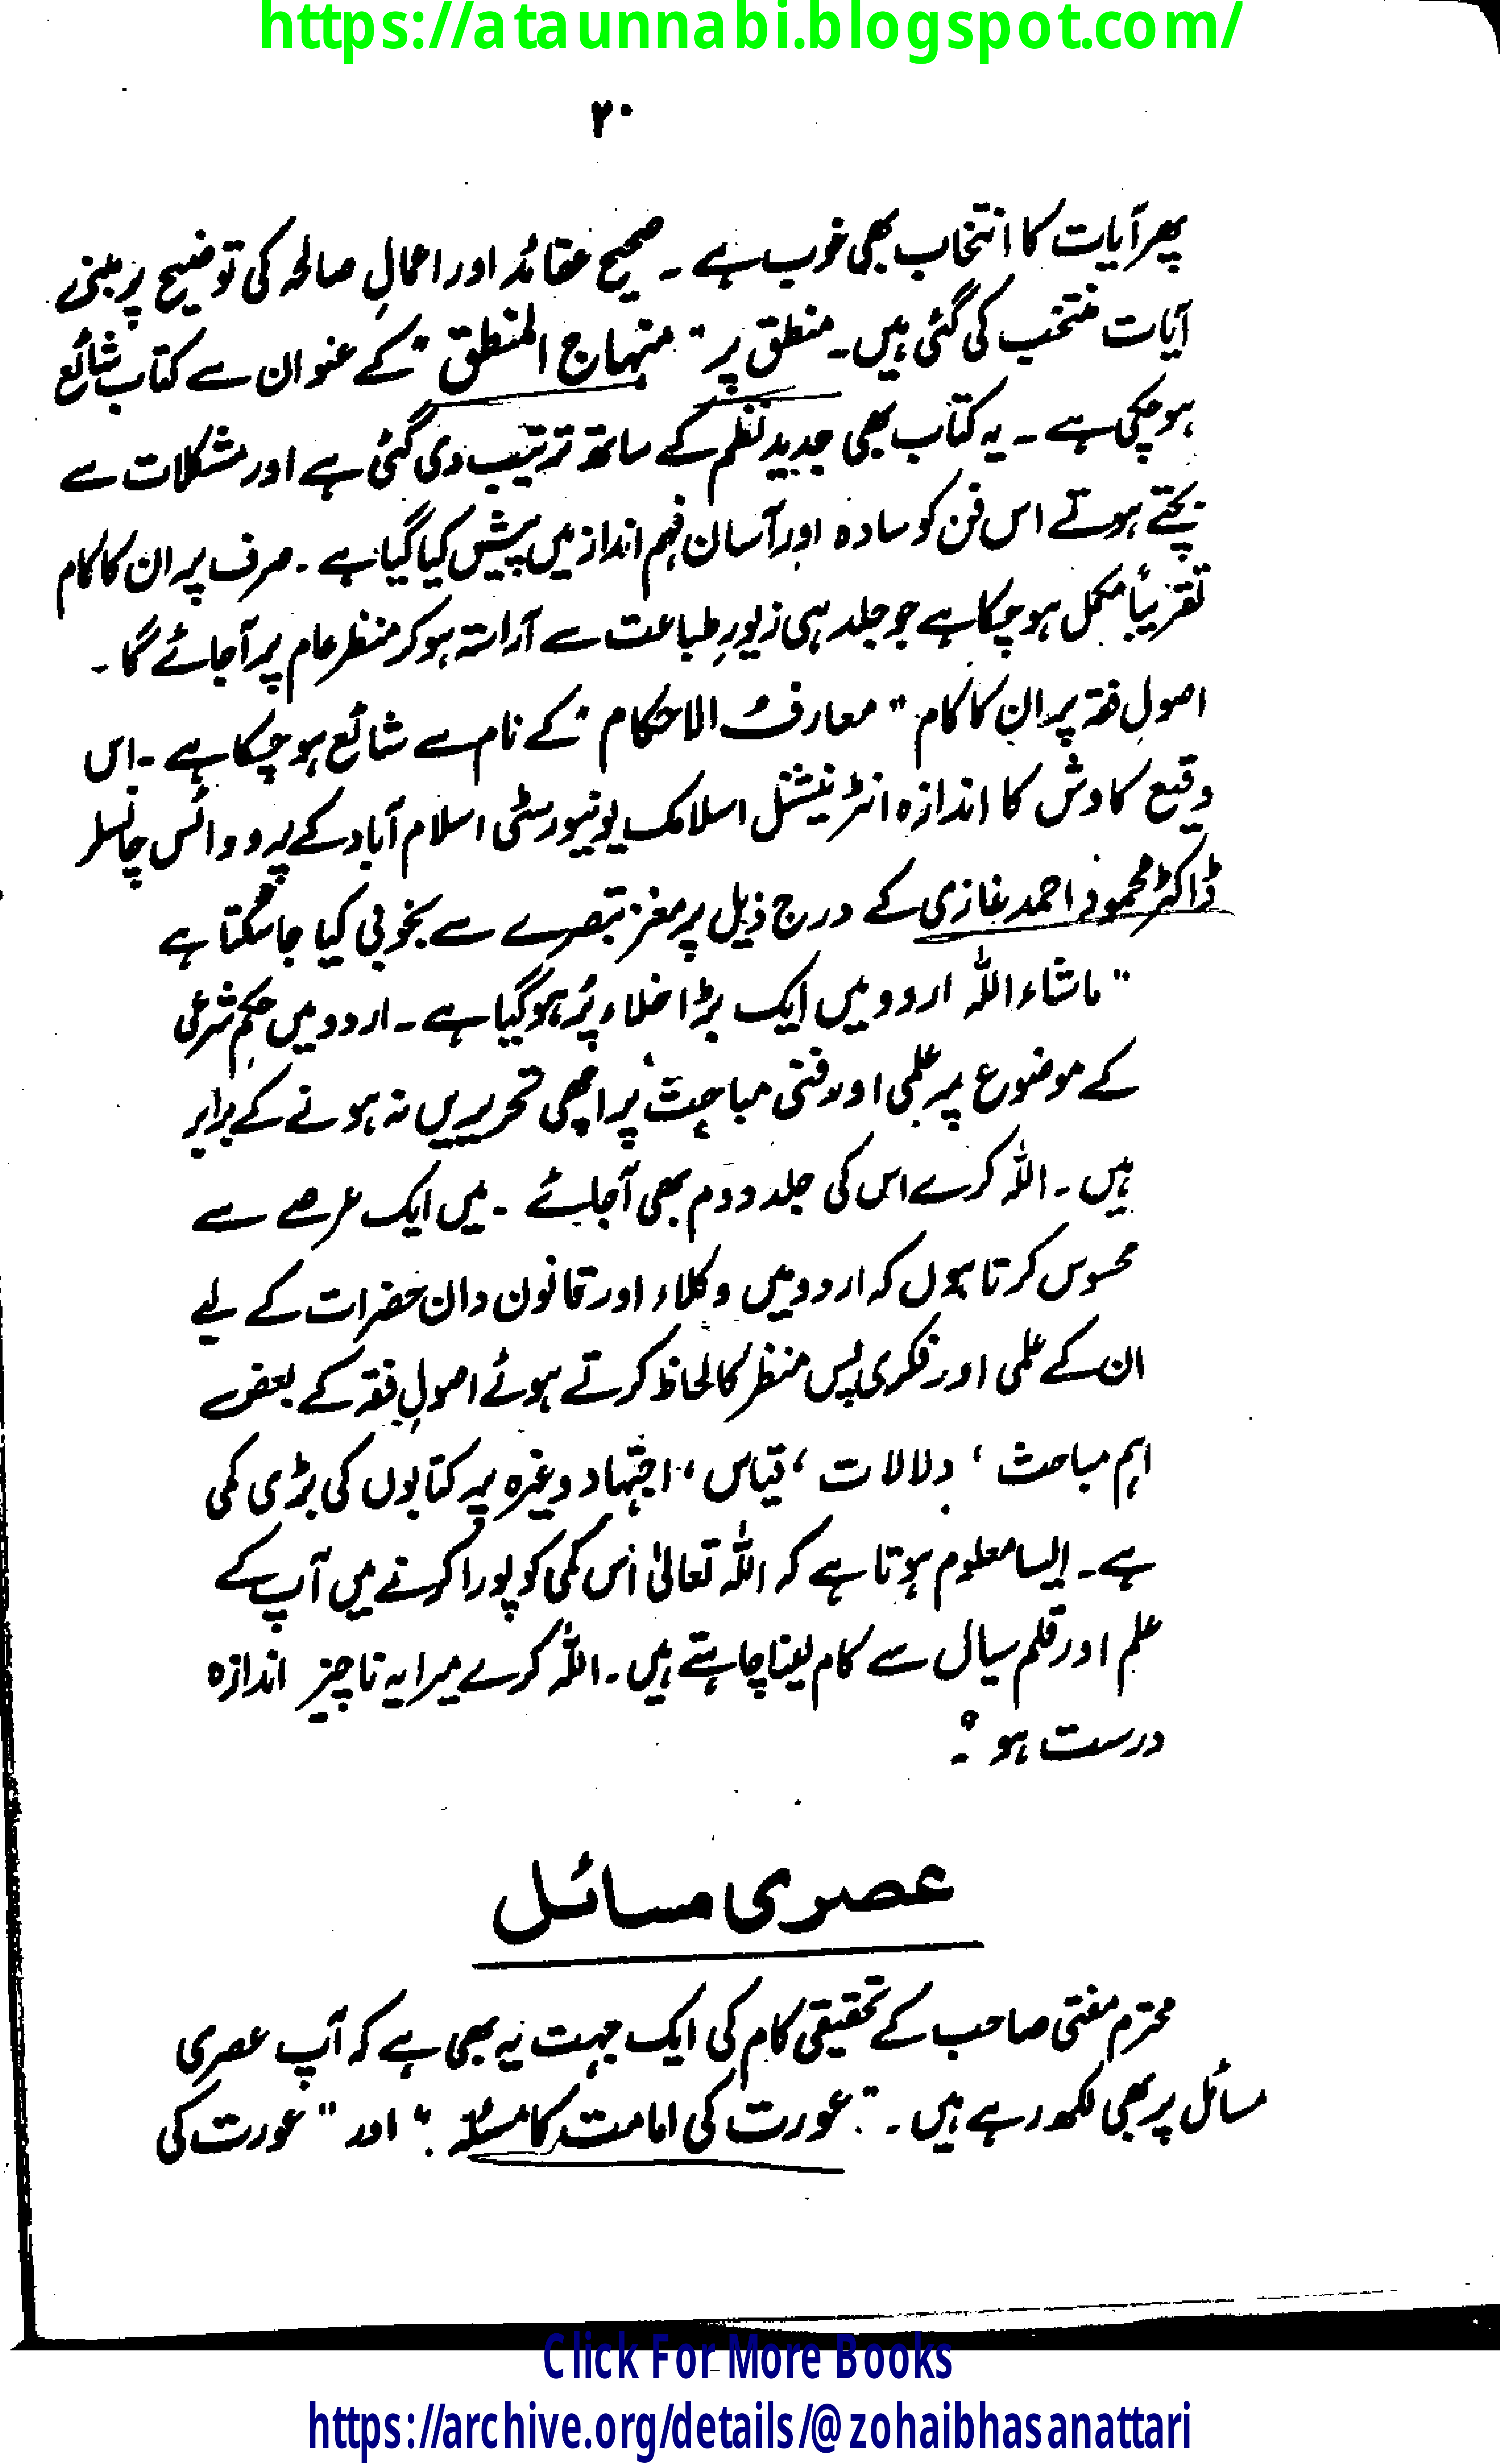 https://ataunnabi.blogspot.com/
۲۰
پھر آیات کا انتخاب بھی خوب ہے ۔ صحیح عقائد اور اعمالِ صالحہ کی توضیح پر مبنی
آیات منتخب کی گئی ہیں۔ منطق پر " منہاج المنطق " کے عنوان سے کتاب شائع
ہو چکی ہے ۔ یہ کتاب بھی جدید نظم کے ساتھ ترتیب دی گئی ہے اور مشکلات سے
بچتے ہوئے اس فن کو سادہ اور آسان فہم انداز میں پیش کیا گیا ہے ۔ صرف پر ان کا کام
تقریباً مکمل ہو چکا ہے جو جلد ہی زیورِ طباعت سے آراستہ ہو کر منظر عام پر آجائے گا ۔
اصولِ فقہ پر ان کا کام " معارف الاحکام " کے نام سے شائع ہو چکا ہے ۔ اس
وقیع کاوش کا اندازہ انٹرنیشنل اسلامک یونیورسٹی اسلام آباد کے پرو وائس چانسلر
ڈاکٹر محمود احمد غازی کے درج ذیل پر مغز تبصرے سے بخوبی کیا جا سکتا ہے
" ماشاء اللہ اردو میں ایک بڑا خلاء پُر ہو گیا ہے ۔ اردو میں حکمِ شرعی
کے موضوع پر علمی اور فنی مباحث پر اچھی تحریریں نہ ہونے کے برابر
ہیں ۔ اللہ کرے اس کی جلد دوم بھی آجائے ۔ میں ایک عرصے سے
محسوس کرتا ہوں کہ اردو میں وکلاء اور قانون دان حضرات کے لیے
ان کے علمی اور فکری پس منظر کا لحاظ کرتے ہوئے اصولِ فقہ کے بعض
اہم مباحث ، دلالات ، قیاس ، اجتہاد وغیرہ پر کتابوں کی بڑی کمی
ہے ۔ ایسا معلوم ہوتا ہے کہ اللہ تعالیٰ اس کمی کو پورا کرنے میں آپ کے
علم اور قلم سیال سے کام لینا چاہتے ہیں ۔ اللہ کرے میرا یہ ناچیز اندازہ
درست ہو " ۔
عصری مسائل
محترم مفتی صاحب کے تحقیقی کام کی ایک جہت یہ بھی ہے کہ آپ عصری
مسائل پر بھی لکھ رہے ہیں ۔ " عورت کی امامت کا مسئلہ " اور " عورت کی
Click For More Books
https://archive.org/details/@zohaibhasanattari